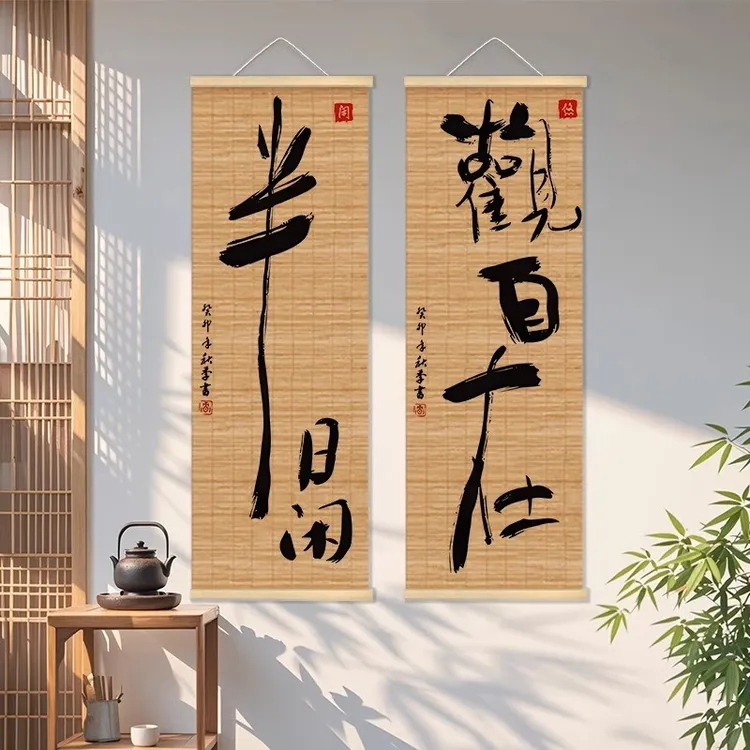 悠
觀自在
癸卯年秋季書
闲
半日闲
癸卯年秋季書